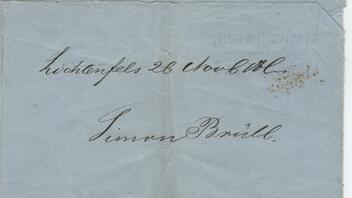 Lichtenfels 26 Novb
Simon Brüll.